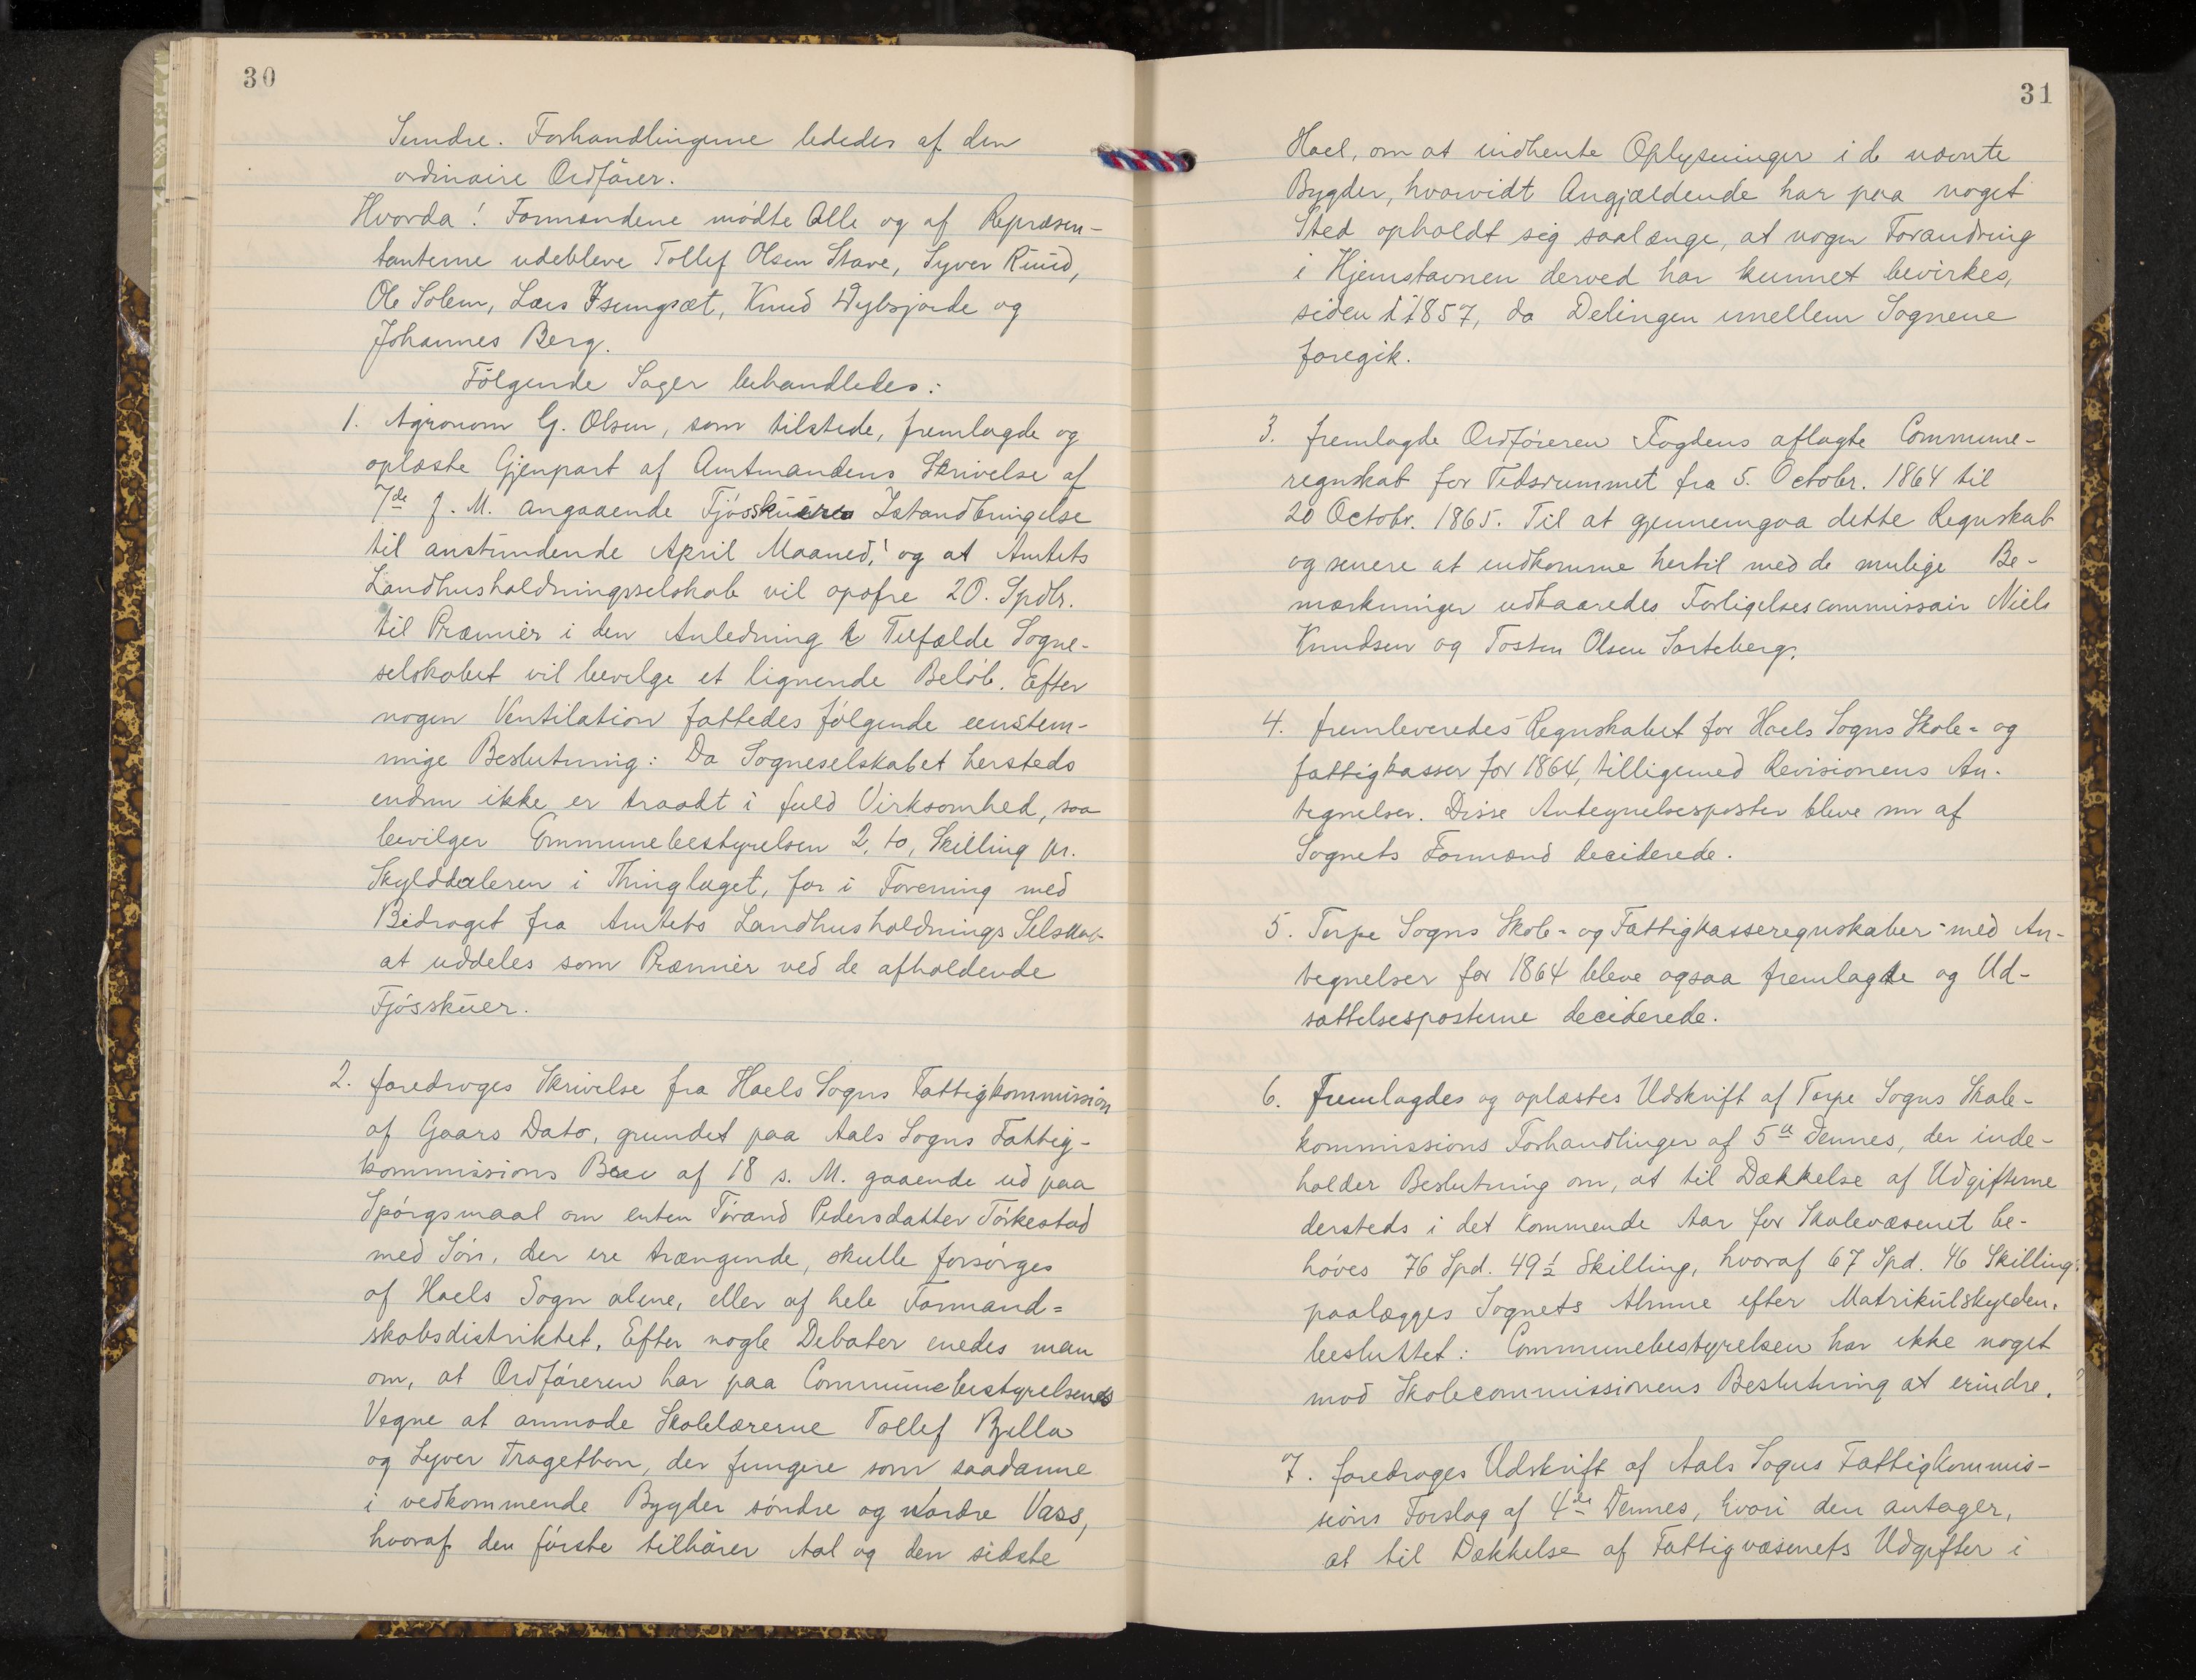 30
Sundre. Forhandlingerne lededes af den
ordinaire Ordfører.
Hvorda! Formændene mødte Alle og af Repræsen-
tanterne udebleve Tollef Olsen Stave, Syver Ruud,
Ole Solem, Lars Isungsæt, Knud
Johannes Berg.
Følgende Sager behandledes:
1. Agronom G. Olsen, som tilstede, fremlagde og
oplæste Gjenpart af Amtmandens Skrivelse af
7de f. M. angaaende Fjösskuers Istandbringelse
til anstundende April Maaned, og at Amtets
Landhusholdningsselskab vil opofre 20. Spdlr.
til Præmier i den Anledning Tilfælde Sogne-
selskabet vil bevilge et lignende Beløb. Efter
nogen Ventilation fattedes følgende eenstem-
mige Beslutning: Da Sogneselskabet hersteds
endnu ikke er traadt i fuld Virksomhed, saa
bevilger Communebestyrelsen 2, to, Skilling pr.
Skylddaleren i Thinglaget, for i Forening med
Bidraget fra Amtets Landhusholdnings Selskab
at uddeles som Præmier ved de afholdende
Fjösskuer.
2. foredroges Skrivelse fra Hoels Sogns Fattigkommission
af Gaars Dato, grundet paa Aals Sogns Fattig-
kommissions Brev af 18 s. M. gaaende ud paa
Spørgsmaal om enten Tørand Pedersdatter Törkestad
med Sön, der ere trængende, skulle forsørges
af Hoels Sogn alene, eller af hele Formand=
skabsdistriktet. Efter nogle Debater enedes man
om, at Ordføreren har paa Communebestyrelsens
Vegne at anmode Skolelærerne Tollef Bjella
og Syver Tragethon, der fungere som saadanne
i vedkommende Bygder søndre og Nordre Vass,
hvoraf den første tilhører Aal og den sidste
31
Hoel, om at indhente Oplysninger i de nævnte
Bygder, hvorvidt Angjældende har paa noget
Sted opholdt sig saalænge, at nogen Forandring
i Hjemstavnen derved har kunnet bevirkes,
siden i 1857, da Delingen imellem Sognene
foregik.
3. fremlagde Ordføreren Fogdens aflagte Commune-
regnskab for Tidsrummet fra 5. Octobr. 1864 til
20 Octobr. 1865. Til at gjennemgaa dette Regnskab
og senere at indkomme hertil med de mulige Be-
mærkninger udkaaredes Forligelsescommissair Niels
Knudsen og Tosten Olsen Sarteberg.
4. fremleveredes Regnskabet for Hoels Sogns Skole= og
fattigkasser for 1864, tilligemed Revisionens An-
tegnelser. Disse Antegnelsesposter bleve nu af
Sognets Formænd deciderede.
5. Torpe Sogns Skole= og Fattigkasseregnskaber med An-
tegnelser for 1864 bleve ogsaa fremlagte og Ud-
sættelsesposterne deciderede.
6. Fremlagdes og oplæstes Udskrift af Torpe Sogns Skole-
kommissions Forhandlinger af 5te Dennes, der inde-
holder Beslutning om, at til Dækkelse af Udgifterne
dersteds i det kommende Aar for Skolevæsenet be-
høves 76 Spd. 49½ Skilling, hvoraf 67 Spd. 46 Skilling
paalægges Sognets Almue efter Matrikulskylden.
besluttet: Communebestyrelsen har ikke noget
mod Skolecommissionens Beslutning at erindre.
7. foredroges Udskrift af Aals Sogns Fattigkommis-
sions Forslag af 4de Dennes, hvori den antager,
at til Dækkelse af Fattigvæsenets Udgifter i